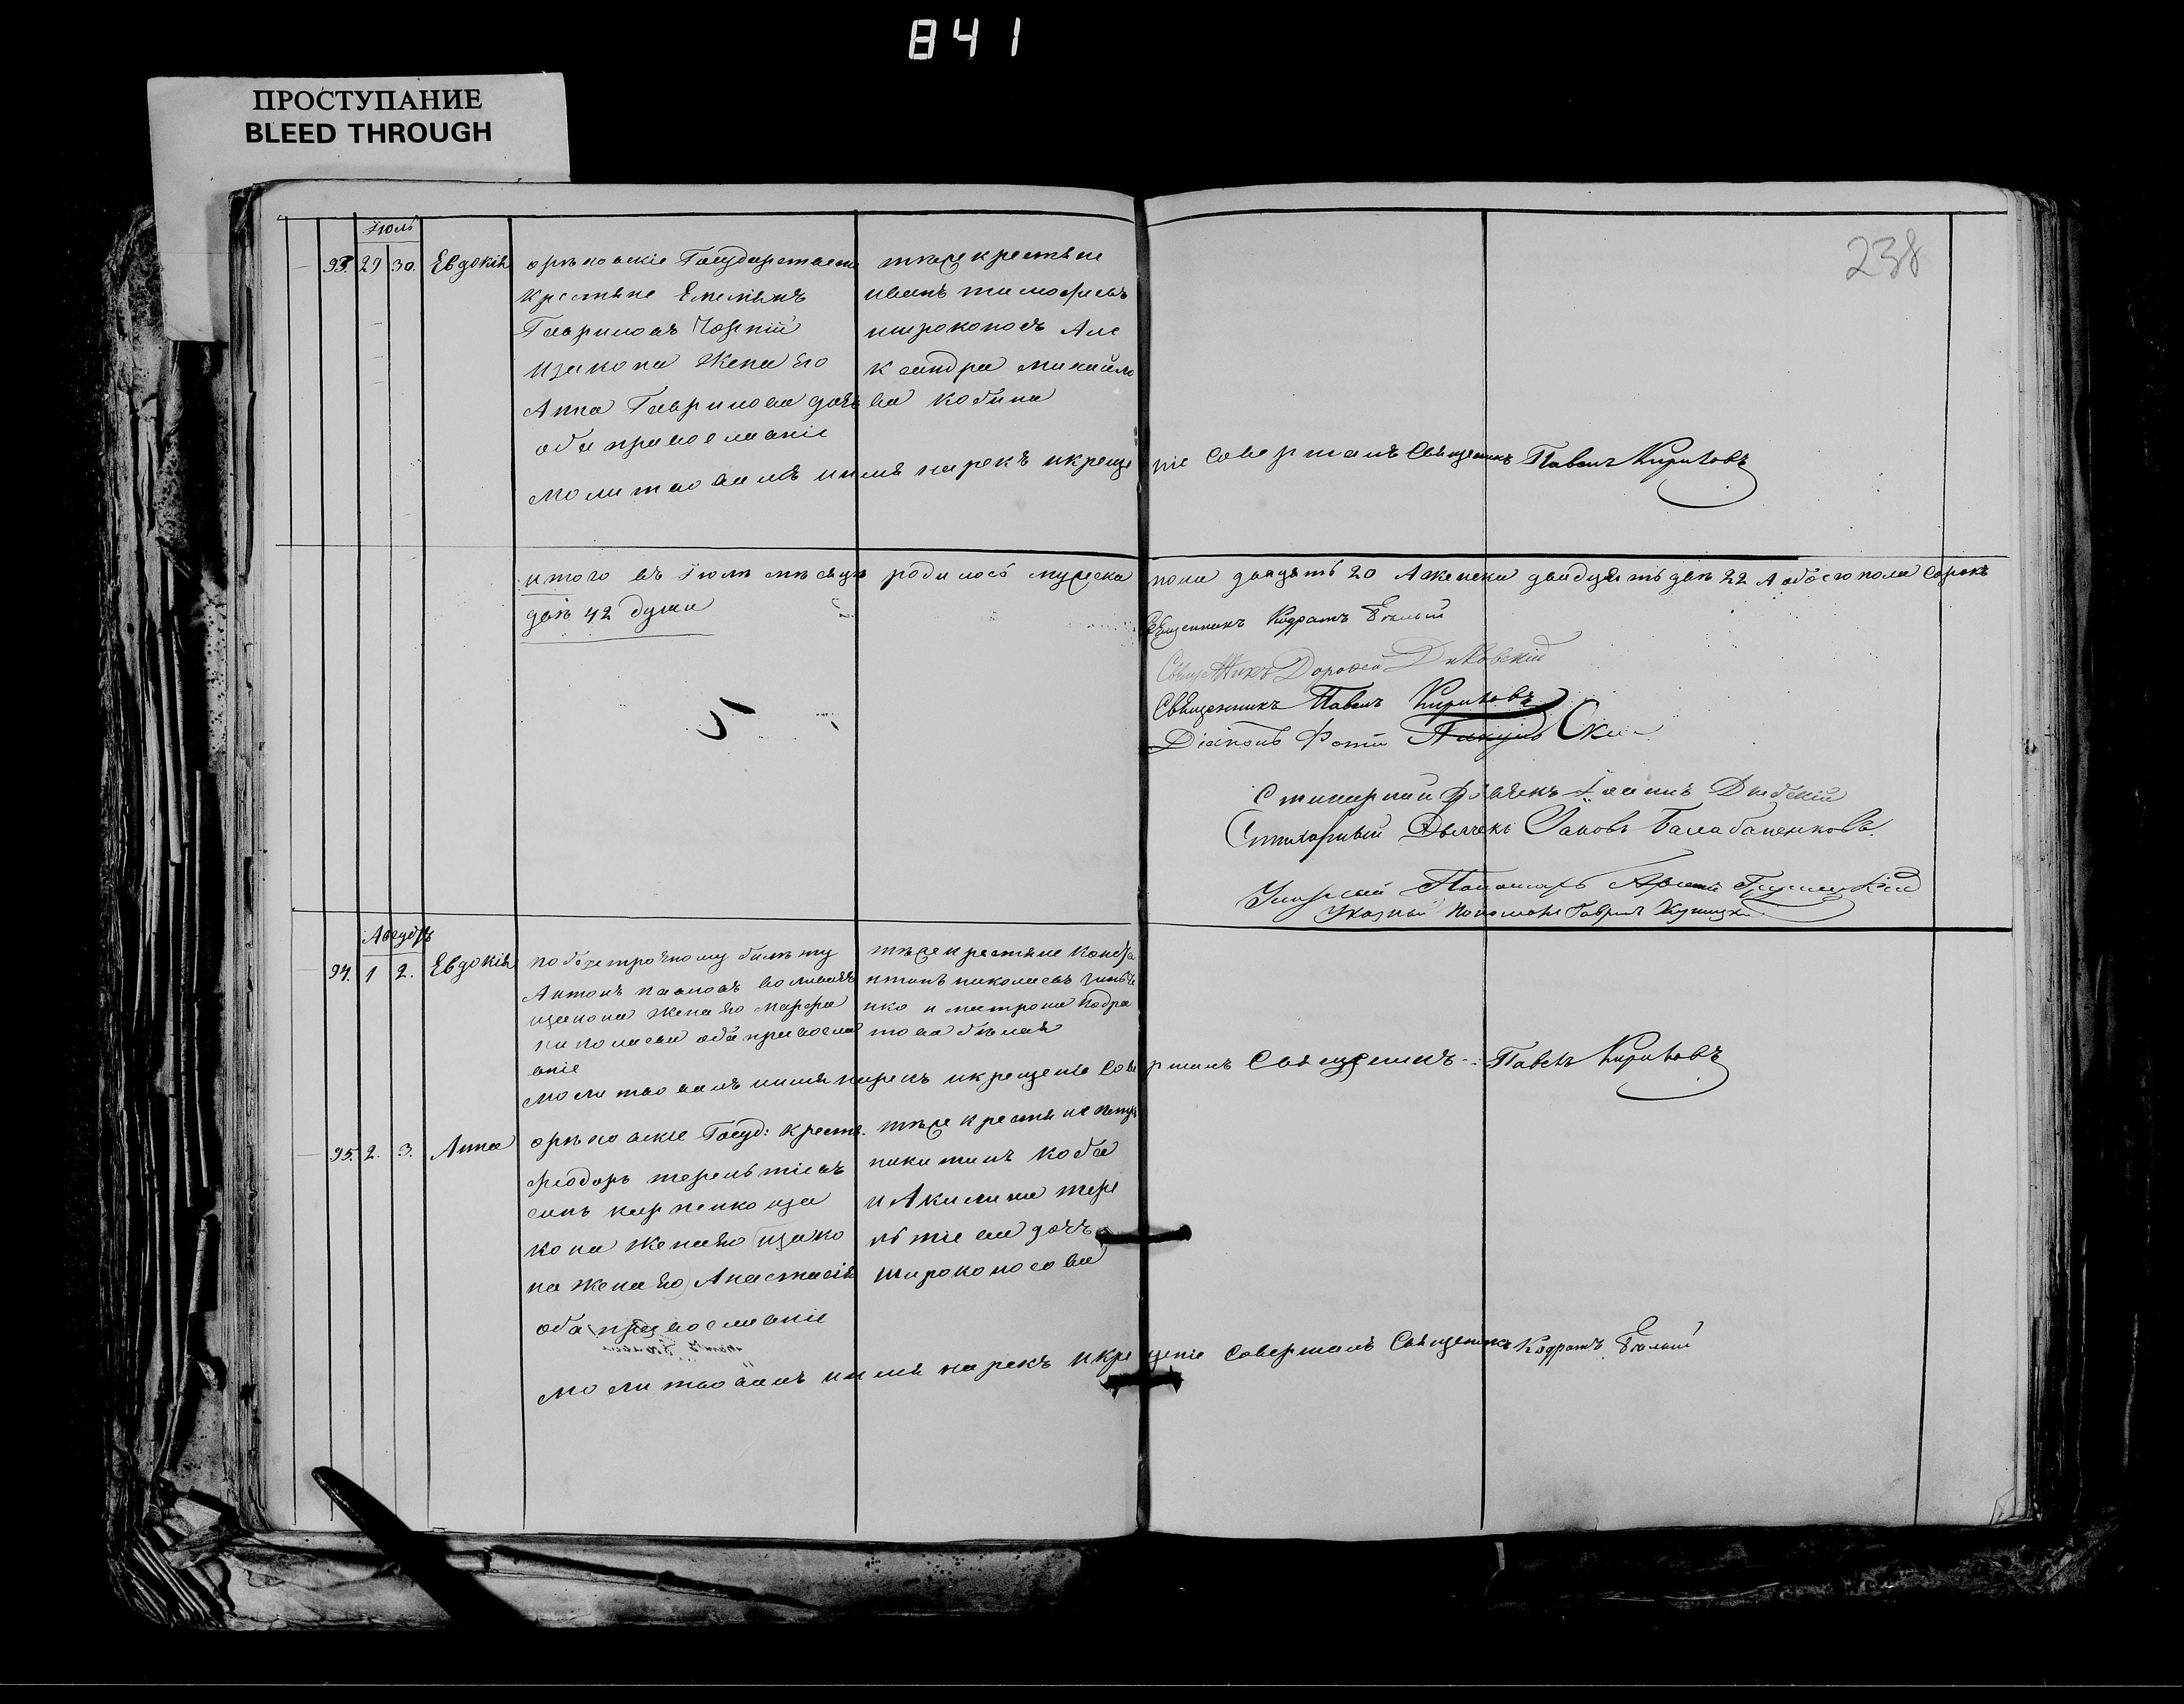 841
ПРОСТУПАНИЕ
BLEED THROUGH
238
Іюль
93. 29 30. Евдокія
орѣховскіе Государствен
крестьяне Емельянъ
Гавриловъ Чорній
изакона жена его
Анна Гаврилова дочь
оба православніе
тѣже крестьяне
иванъ тимофеевъ
широконосъ Але
ксандра михайло
ва кобина
молитвовалъ иимя нарекъ икрещеніе совершалъ Священикъ Павелъ Кириковъ
итого въ Іюлѣ месяцѣ родилось мужеска пола двадцять 20 Аженска двадцять двѣ 22 А обоего пола сорокъ
двѣ 42 души
Священникъ Кодратъ Бѣлый
Священникъ Дорофей
Священникъ Павелъ Кириковъ
Діаконъ Фотій
Стихарный Дьячекъ Іоаннъ
Стихарный Дьячекъ Яковъ Балабаненковъ
Указный Пономарь
Указный пономарь Гавриилъ
Августъ
94. 1 2. Евдокія
побезсрочному билѣту
Антонъ павловъ
изакона жена его марфа
николаева оба православ
ніе
тѣже крестьяне
николаевъ
нко и матрона Кодра
това бѣлая
молитвовалъ иимя нарекъ икрещеніе совершалъ Священикъ Павелъ Кириковъ
95. 2. 3. Анна
орѣховскіе Госуд: крестя.
фіодоръ терентіевъ
сынъ карпенко иза
кона жена его (изако
на жена его) Анастасія
оба православніе
тѣже крестьяне петръ
никитинъ коба
и Акилина тере
нтіева дочъ
широконосова
молитвовалъ иимя нарекъ икрещеніе совершалъ Священикъ Кодратъ Бѣлый